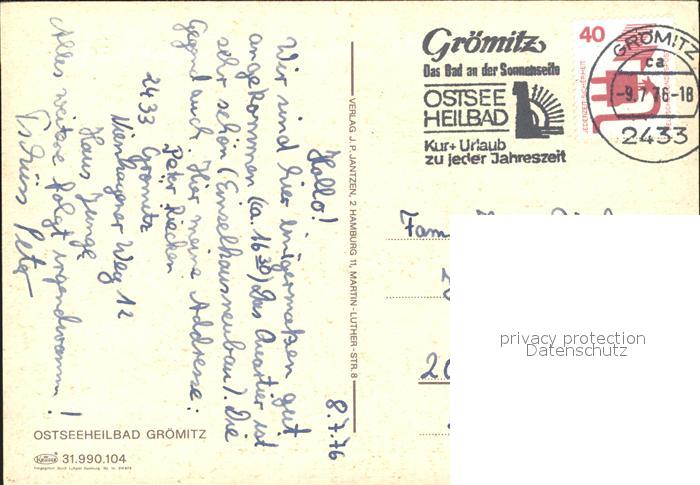 8.7.76
Hallo!
Wir sind hier einigermaßen gut
angekommen (ca. 16³⁰) Das Quartier ist
sehr schön (Einzelhausneubau). Die
Gegend auch. Hier meine Addresse:
Peter
2433 Grömitz
Nienhagener Weg 12
Haus Junge
Alles weitere folgt irgendwann!
Tschüss Peter
OSTSEEHEILBAD GRÖMITZ
31.990.104
VERLAG J. P. JANTZEN, 2 HAMBURG 11, MARTIN-LUTHER-STR. 8
Grömitz
Das Bad an der Sonnenseite
OSTSEE
HEILBAD
Kur + Urlaub
zu jeder Jahreszeit
40
JEDERZEIT SICHERHEIT
GRÖMITZ
ca
-9.7.76-18
2433
Fam
privacy protection
Datenschutz